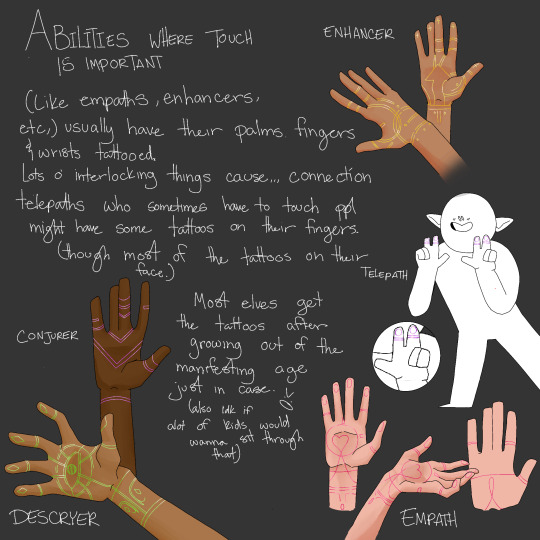 Abilities where touch
is important
(Like empaths, enhancers,
etc,) usually have their palms, fingers
& wrists tattooed.
Lots o' interlocking things cause... connection
telepaths who sometimes have to touch ppl
might have some tattoos on their fingers.
(though most of the tattoos on their
face.)
ENHANCER
TELEPATH
CONJURER
Most elves get
the tattoos after
growing out of the
manifesting age
just in case.
(also idk if
alot of kids would
wanna sit through
that)
DESCRYER
EMPATH